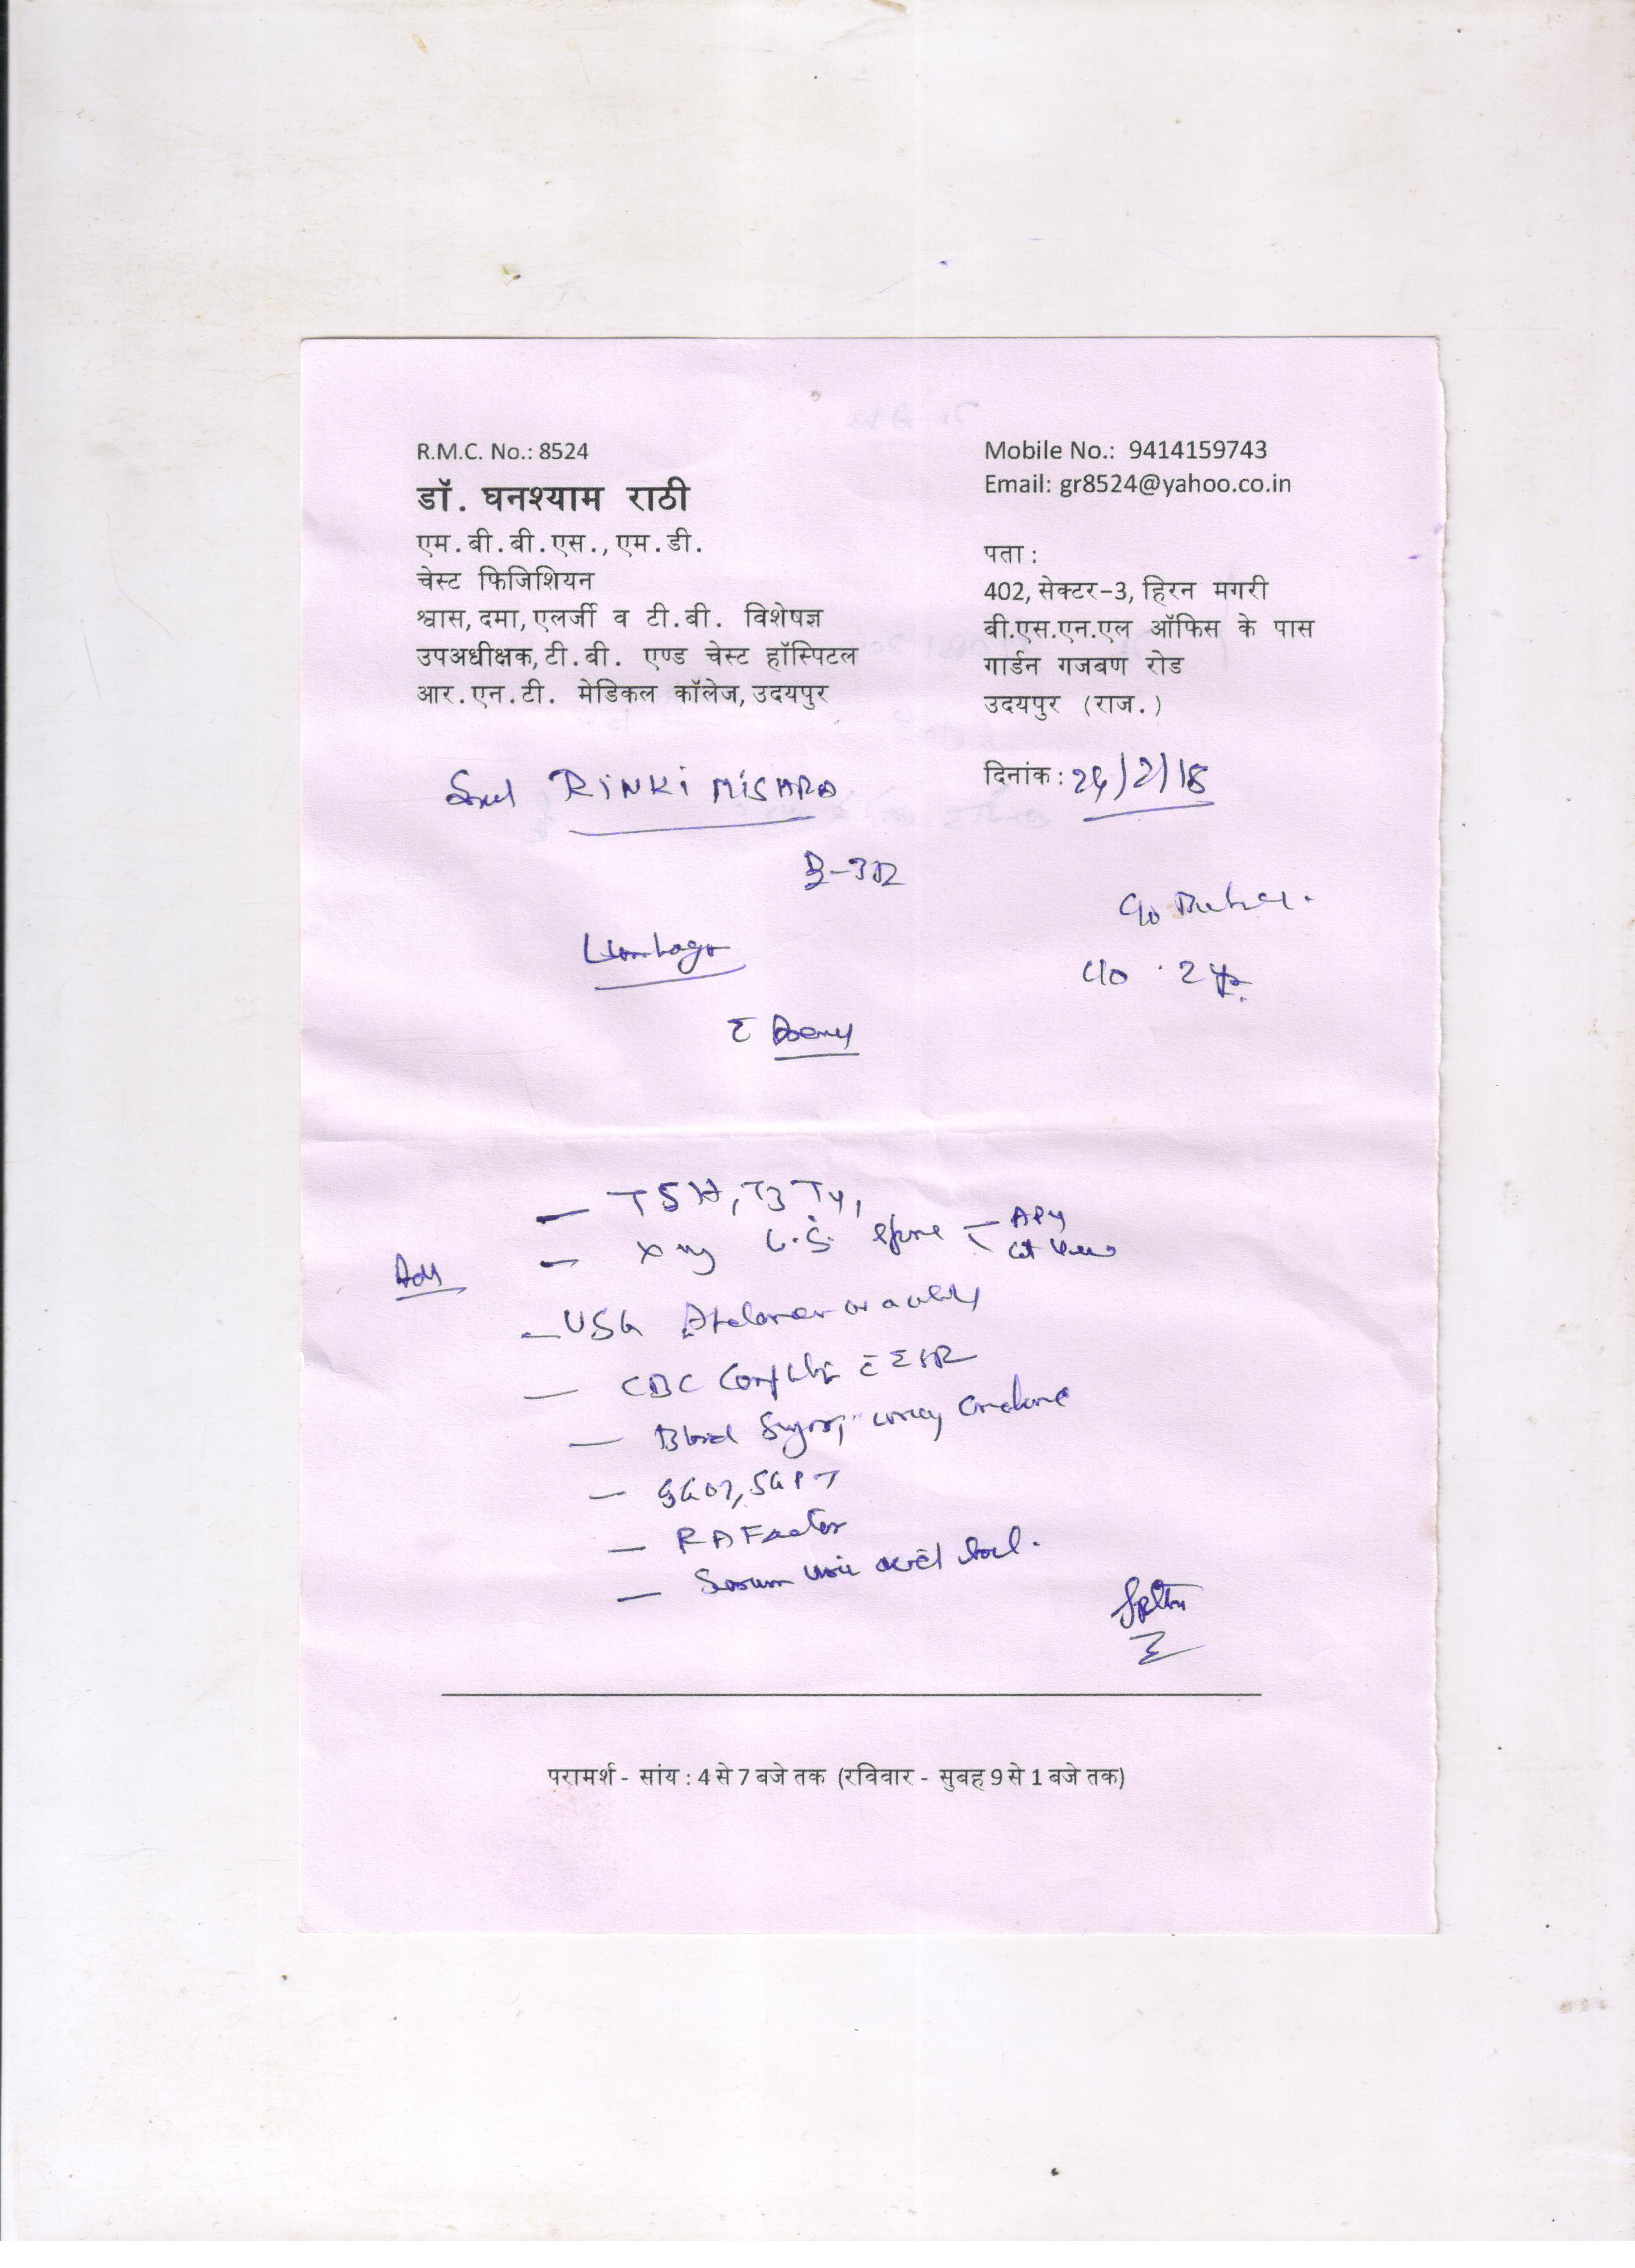 R.M.C. No.: 8524
डॉ. घनश्याम राठी
एम.बी.बी.एस., एम.डी.
चेस्ट फिजिशियन
श्वास, दमा, एलर्जी व टी.बी. विशेषज्ञ
उपअधीक्षक, टी.बी. एण्ड चेस्ट हॉस्पिटल
आर.एन.टी. मेडिकल कॉलेज, उदयपुर
Mobile No.: 9414159743
Email: gr8524@yahoo.co.in
पता :
402, सेक्टर-3, हिरन मगरी
बी.एस.एन.एल ऑफिस के पास
गार्डन गजबण रोड
उदयपुर (राज.)
दिनांक : 24/2/18
RINKI MISHRA
Lumbago
c/o 2 yr.
Adv
- TSH, T3 T4,
- X ray L.S. Spine - AP
Lat view
- USG Abdomen
- CBC Complete c̄ ESR
- Blood Sugar, urea, Creatinine
- SGOT, SGPT
- RA Factor
- Serum uric acid level.
परामर्श - सांय : 4 से 7 बजे तक (रविवार - सुबह 9 से 1 बजे तक)